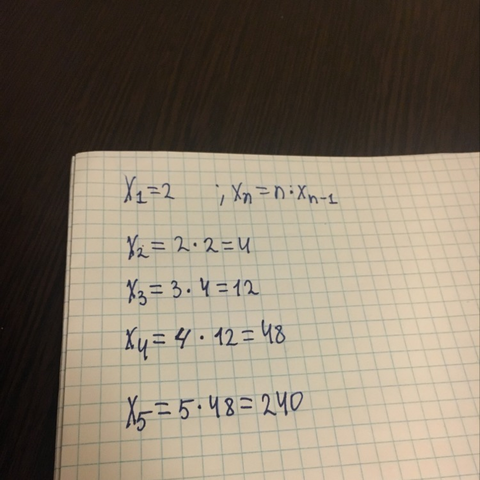 X₁=2 ; xₙ=n·xₙ₋₁
X₂=2·2=4
X₃=3·4=12
X₄=4·12=48
X₅=5·48=240